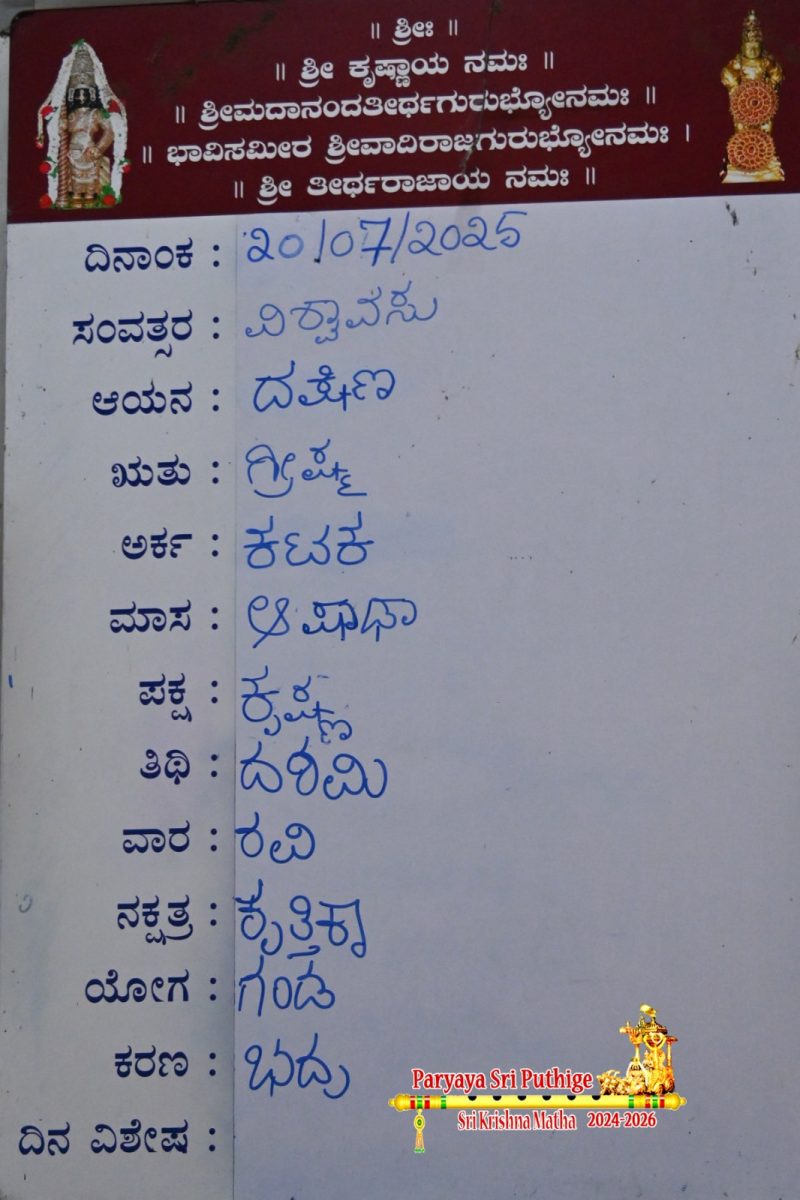 ॥ ಶ್ರೀಃ ॥
॥ ಶ್ರೀ ಕೃಷ್ಣಾಯ ನಮಃ ॥
॥ ಶ್ರೀಮದಾನಂದತೀರ್ಥಗುರುಭ್ಯೋನಮಃ ॥
॥ ಭಾವಿಸಮೀರ ಶ್ರೀವಾದಿರಾಜಗುರುಭ್ಯೋನಮಃ ।
॥ ಶ್ರೀ ತೀರ್ಥರಾಜಾಯ ನಮಃ ॥
ದಿನಾಂಕ : 20/07/2025
ಸಂವತ್ಸರ : ವಿಶ್ವಾವಸು
ಆಯನ : ದಕ್ಷಿಣ
ಋತು : ಗ್ರೀಷ್ಮ
ಅರ್ಕ : ಕಟಕ
ಮಾಸ : ಆಷಾಢಾ
ಪಕ್ಷ : ಕೃಷ್ಣ
ತಿಥಿ : ದಶಮಿ
ವಾರ : ರವಿ
ನಕ್ಷತ್ರ : ಕೃತ್ತಿಕಾ
ಯೋಗ : ಗಂಡ
ಕರಣ : ಭದ್ರ
ದಿನ ವಿಶೇಷ :
Paryaya Sri Puthige
Sri Krishna Matha 2024-2026